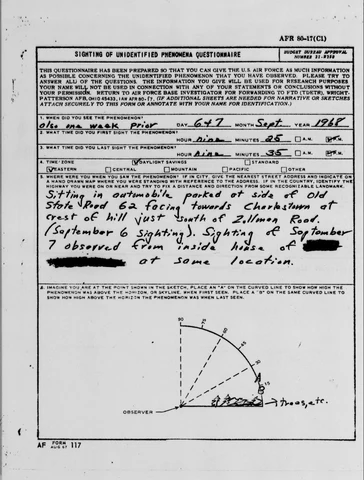 AFR 80-17(C1)
SIGHTING OF UNIDENTIFIED PHENOMENA QUESTIONNAIRE
BUDGET BUREAU APPROVAL
NUMBER 21-R258
THIS QUESTIONNAIRE HAS BEEN PREPARED SO THAT YOU CAN GIVE THE U.S. AIR FORCE AS MUCH INFORMATION
AS POSSIBLE CONCERNING THE UNIDENTIFIED PHENOMENON THAT YOU HAVE OBSERVED. PLEASE TRY TO
ANSWER ALL OF THE QUESTIONS. THE INFORMATION YOU GIVE WILL BE USED FOR RESEARCH PURPOSES.
YOUR NAME WILL NOT BE USED IN CONNECTION WITH ANY OF YOUR STATEMENTS OR CONCLUSIONS WITHOUT
YOUR PERMISSION. RETURN TO AIR FORCE BASE INVESTIGATOR FOR FORWARDING TO FTD (TDETR), WRIGHT-
PATTERSON AFB, OHIO 45433, IAW AFR 80-17. (IF ADDITIONAL SHEETS ARE NEEDED FOR NARRATIVE OR SKETCHES
ATTACH SECURELY TO THIS FORM OR ANNOTATE WITH YOUR NAME FOR IDENTIFICATION.)
1. WHEN DID YOU SEE THE PHENOMENON?
also one week prior DAY 6&7 MONTH Sept. YEAR 1968
2. WHAT TIME DID YOU FIRST SIGHT THE PHENOMENON?
HOUR nine MINUTES 25 A.M. P.M.
3. WHAT TIME DID YOU LAST SIGHT THE PHENOMENON?
HOUR nine MINUTES 35 A.M. P.M.
4. TIME/ZONE
DAYLIGHT SAVINGS STANDARD
EASTERN CENTRAL MOUNTAIN PACIFIC OTHER
5. WHERE WERE YOU WHEN YOU SAW THE PHENOMENON? IF IN CITY, GIVE THE NEAREST STREET ADDRESS AND INDICATE ON
A HAND DRAWN MAP WHERE YOU WERE STANDING WITH REFERENCE TO THE ADDRESS. IF IN THE COUNTRY, IDENTIFY THE
HIGHWAY YOU WERE ON OR NEAR AND TRY TO FIX A DISTANCE AND DIRECTION FROM SOME RECOGNIZABLE LANDMARK.
Sitting in automobile parked at side of Old
State Road 62 facing towards Charlestown at
crest of hill just south of Zollman Road.
(September 6 sighting). Sighting of September
7 observed from inside house of
at same location.
6. IMAGINE YOU ARE AT THE POINT SHOWN IN THE SKETCH, PLACE AN "A" ON THE CURVED LINE TO SHOW HOW HIGH THE
PHENOMENON WAS ABOVE THE HORIZON, OR SKYLINE, WHEN FIRST SEEN. PLACE A "B" ON THE SAME CURVED LINE TO
SHOW HOW HIGH ABOVE THE HORIZON THE PHENOMENON WAS WHEN LAST SEEN.
90
60
30
15
trees, etc.
OBSERVER
AF FORM AUG 67 117